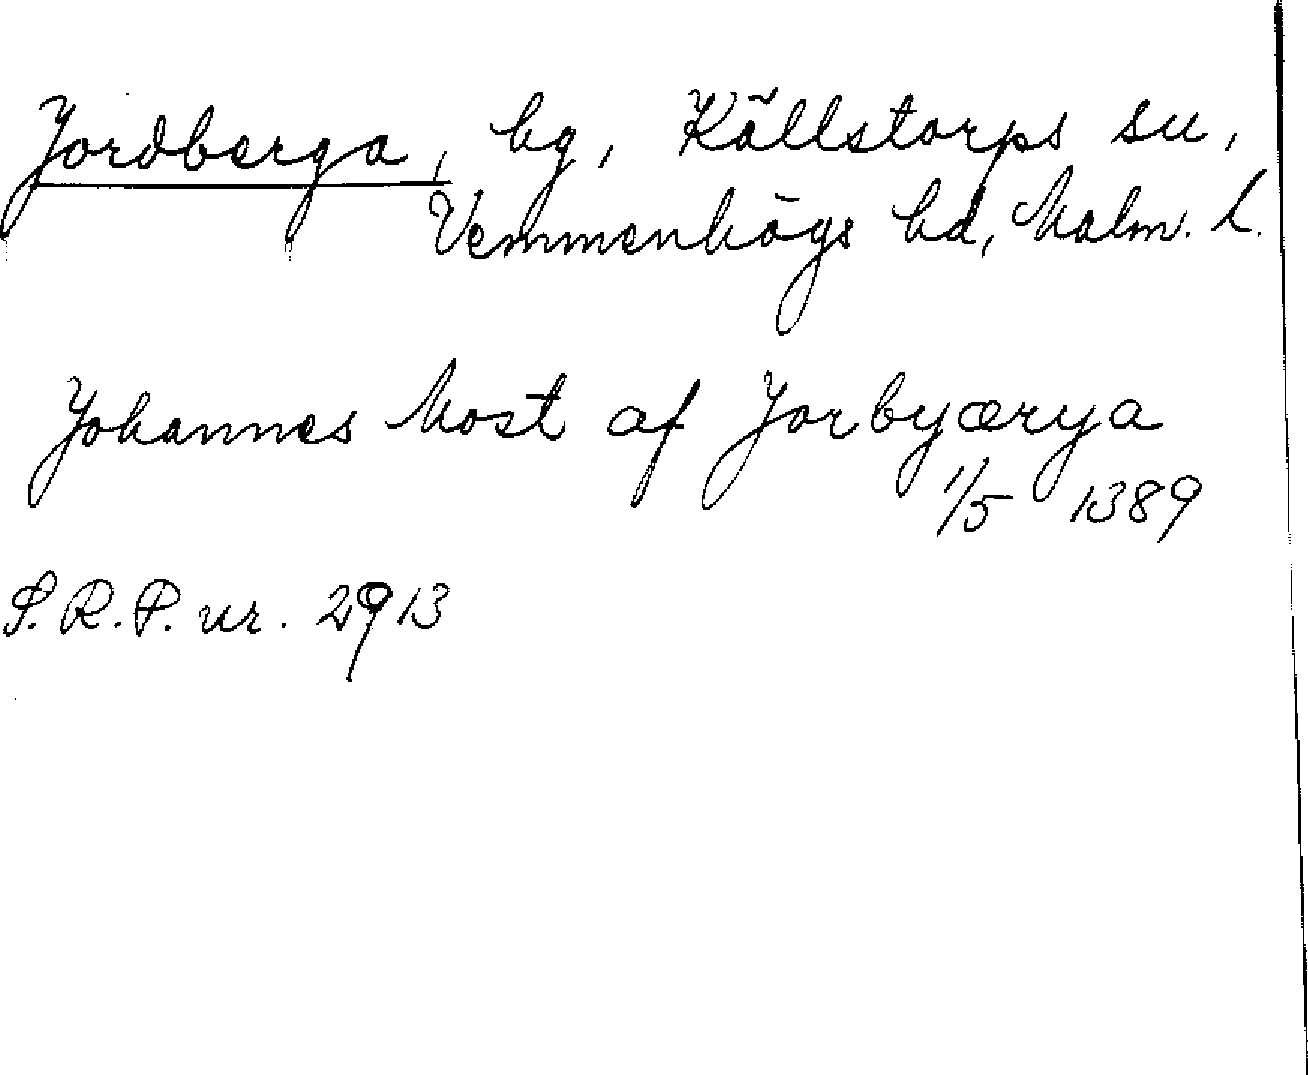 Jordberga, hg, Källstorps sn,
Vemmenhögs hd, Malm. l.
Johannes Most af Jorbyærya
1/5 1389
S.R.P. nr. 2913